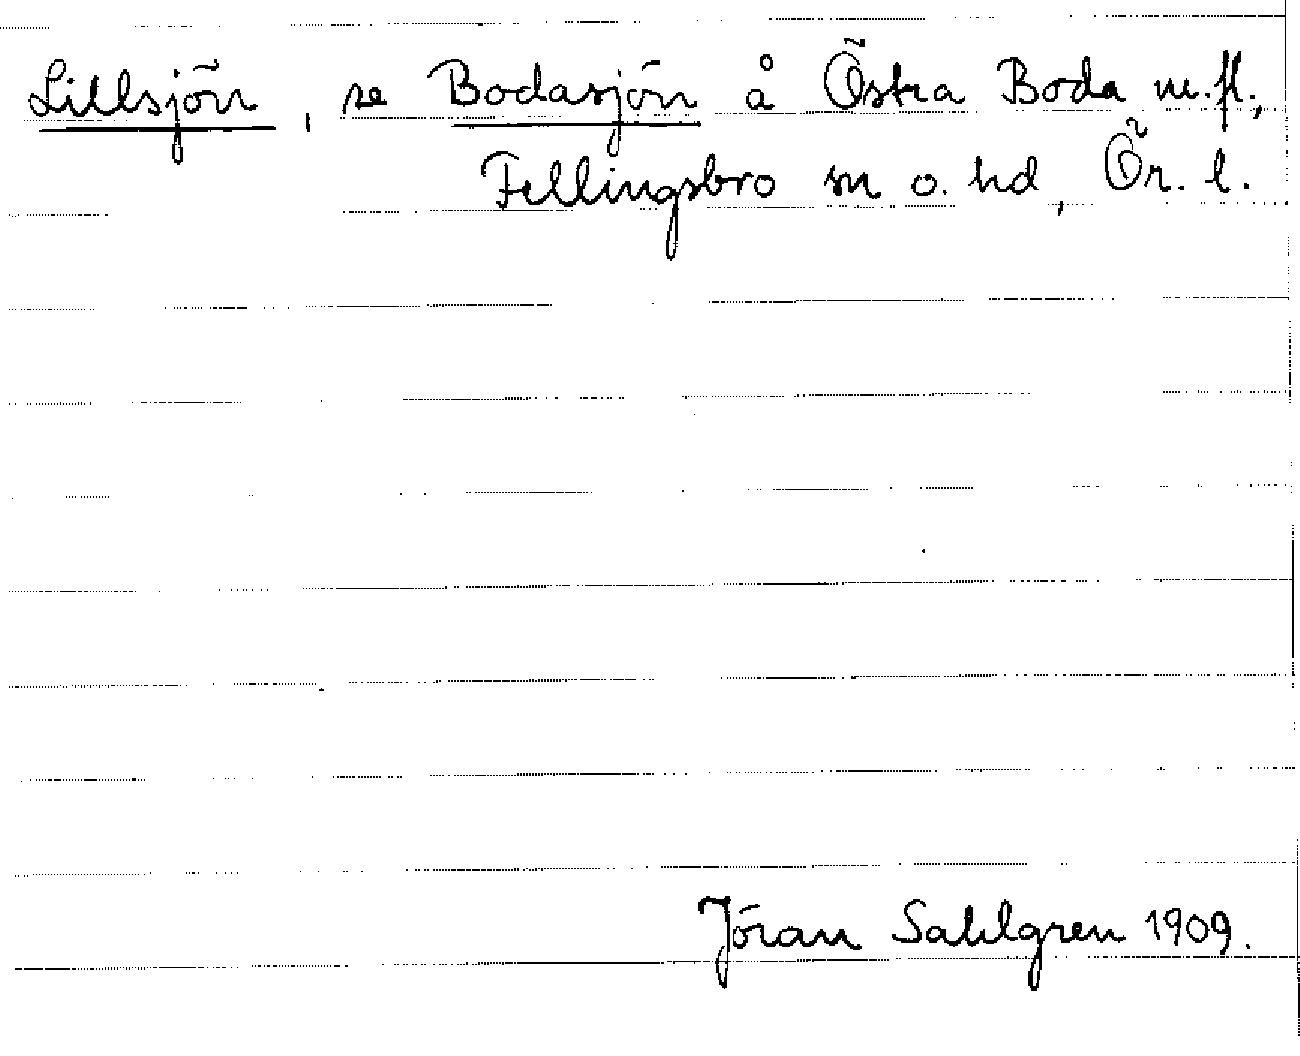 Lillsjön, se Bodasjön å Östra Boda m.fl.,
Fellingsbro sn o. hd, Ör. l.
Jöran Sahlgren 1909.